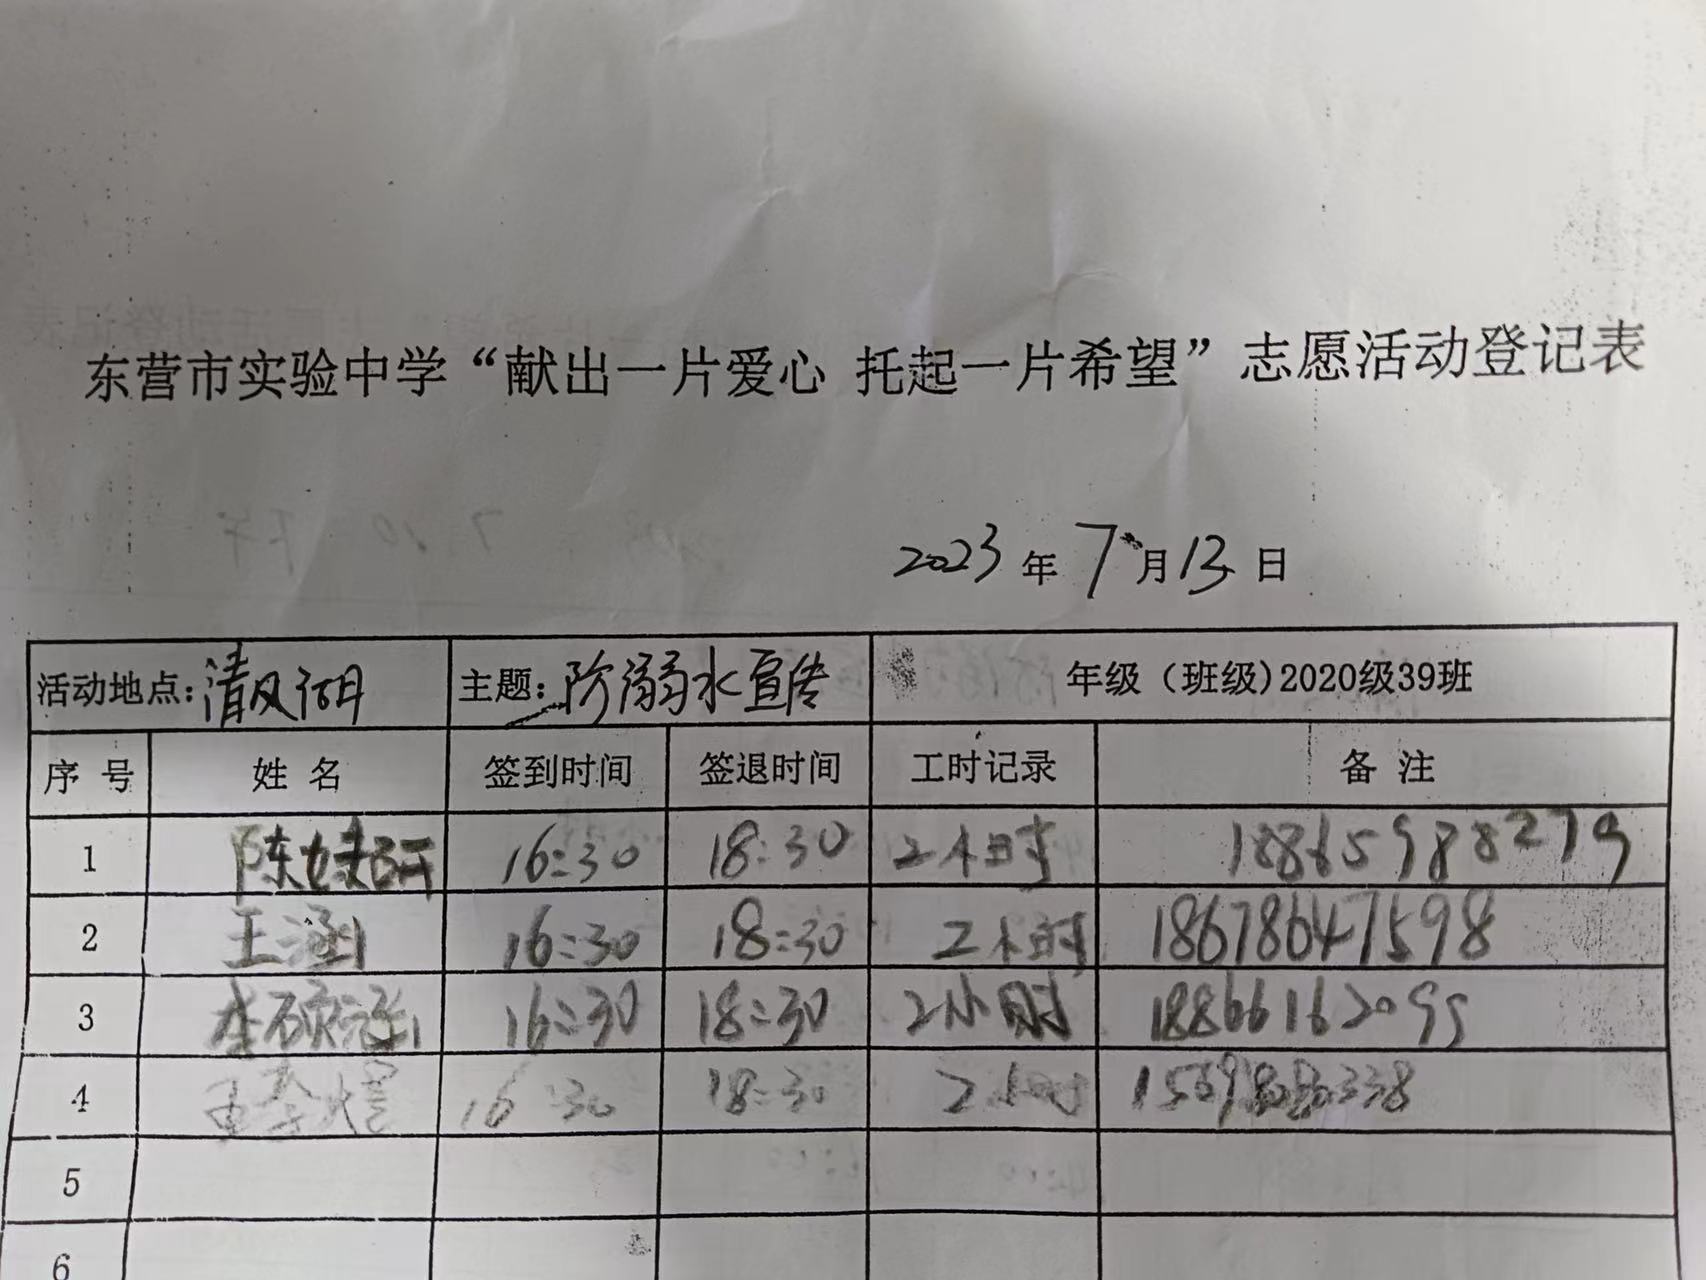 东营市实验中学“献出一片爱心 托起一片希望”志愿活动登记表
2023 年 7 月 13 日
活动地点: 清风湖 主题: 防溺水宣传 年级（班级)2020级39班
序 号 姓 名 签到时间 签退时间 工时记录 备 注
1 陈 16:30 18:30 2小时 18865988279
2 王涵 16:30 18:30 2小时 18678647598
3 李硕涵 16:30 18:30 2小时 18866162099
4 16:30 18:30 2小时
5
6